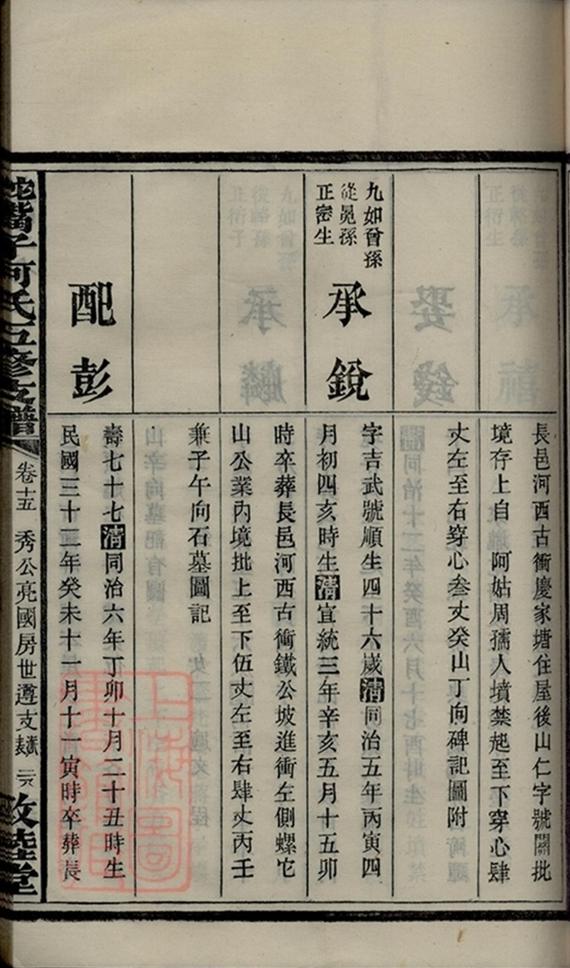 長邑河西古衝慶家塘住屋後山仁字號鬮批
境存上自 阿姑周孺人墳禁起至下穿心肆
丈左至右穿心叁丈癸山丁向碑記圖附
九如曾孫
從晃孫
正密生
承銳
字吉武號順生四十六歲清同治五年丙寅四
月初四亥時生清宣統三年辛亥五月十五卯
時卒葬長邑河西古衝鐵公坡進衝左側螺它
山公業內境批上至下伍丈左至右肆丈丙壬
兼子午向石墓圖記
配彭
壽七十七清同治六年丁卯十月二十五時生
民國三十二年癸未十一月十一寅時卒葬長
子何氏五修支譜
卷十五
秀公亮國房世遵支
敦睦堂